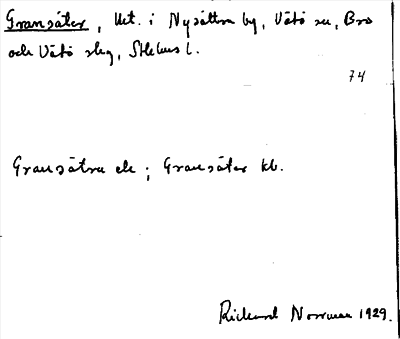 Gransäter, Ut. i Nysättra by, Vätö sn, Bro
och Vätö slg, Sthlms l.
74
Gransätra ek; Gransäter kb.
Rickard Norrman 1929.